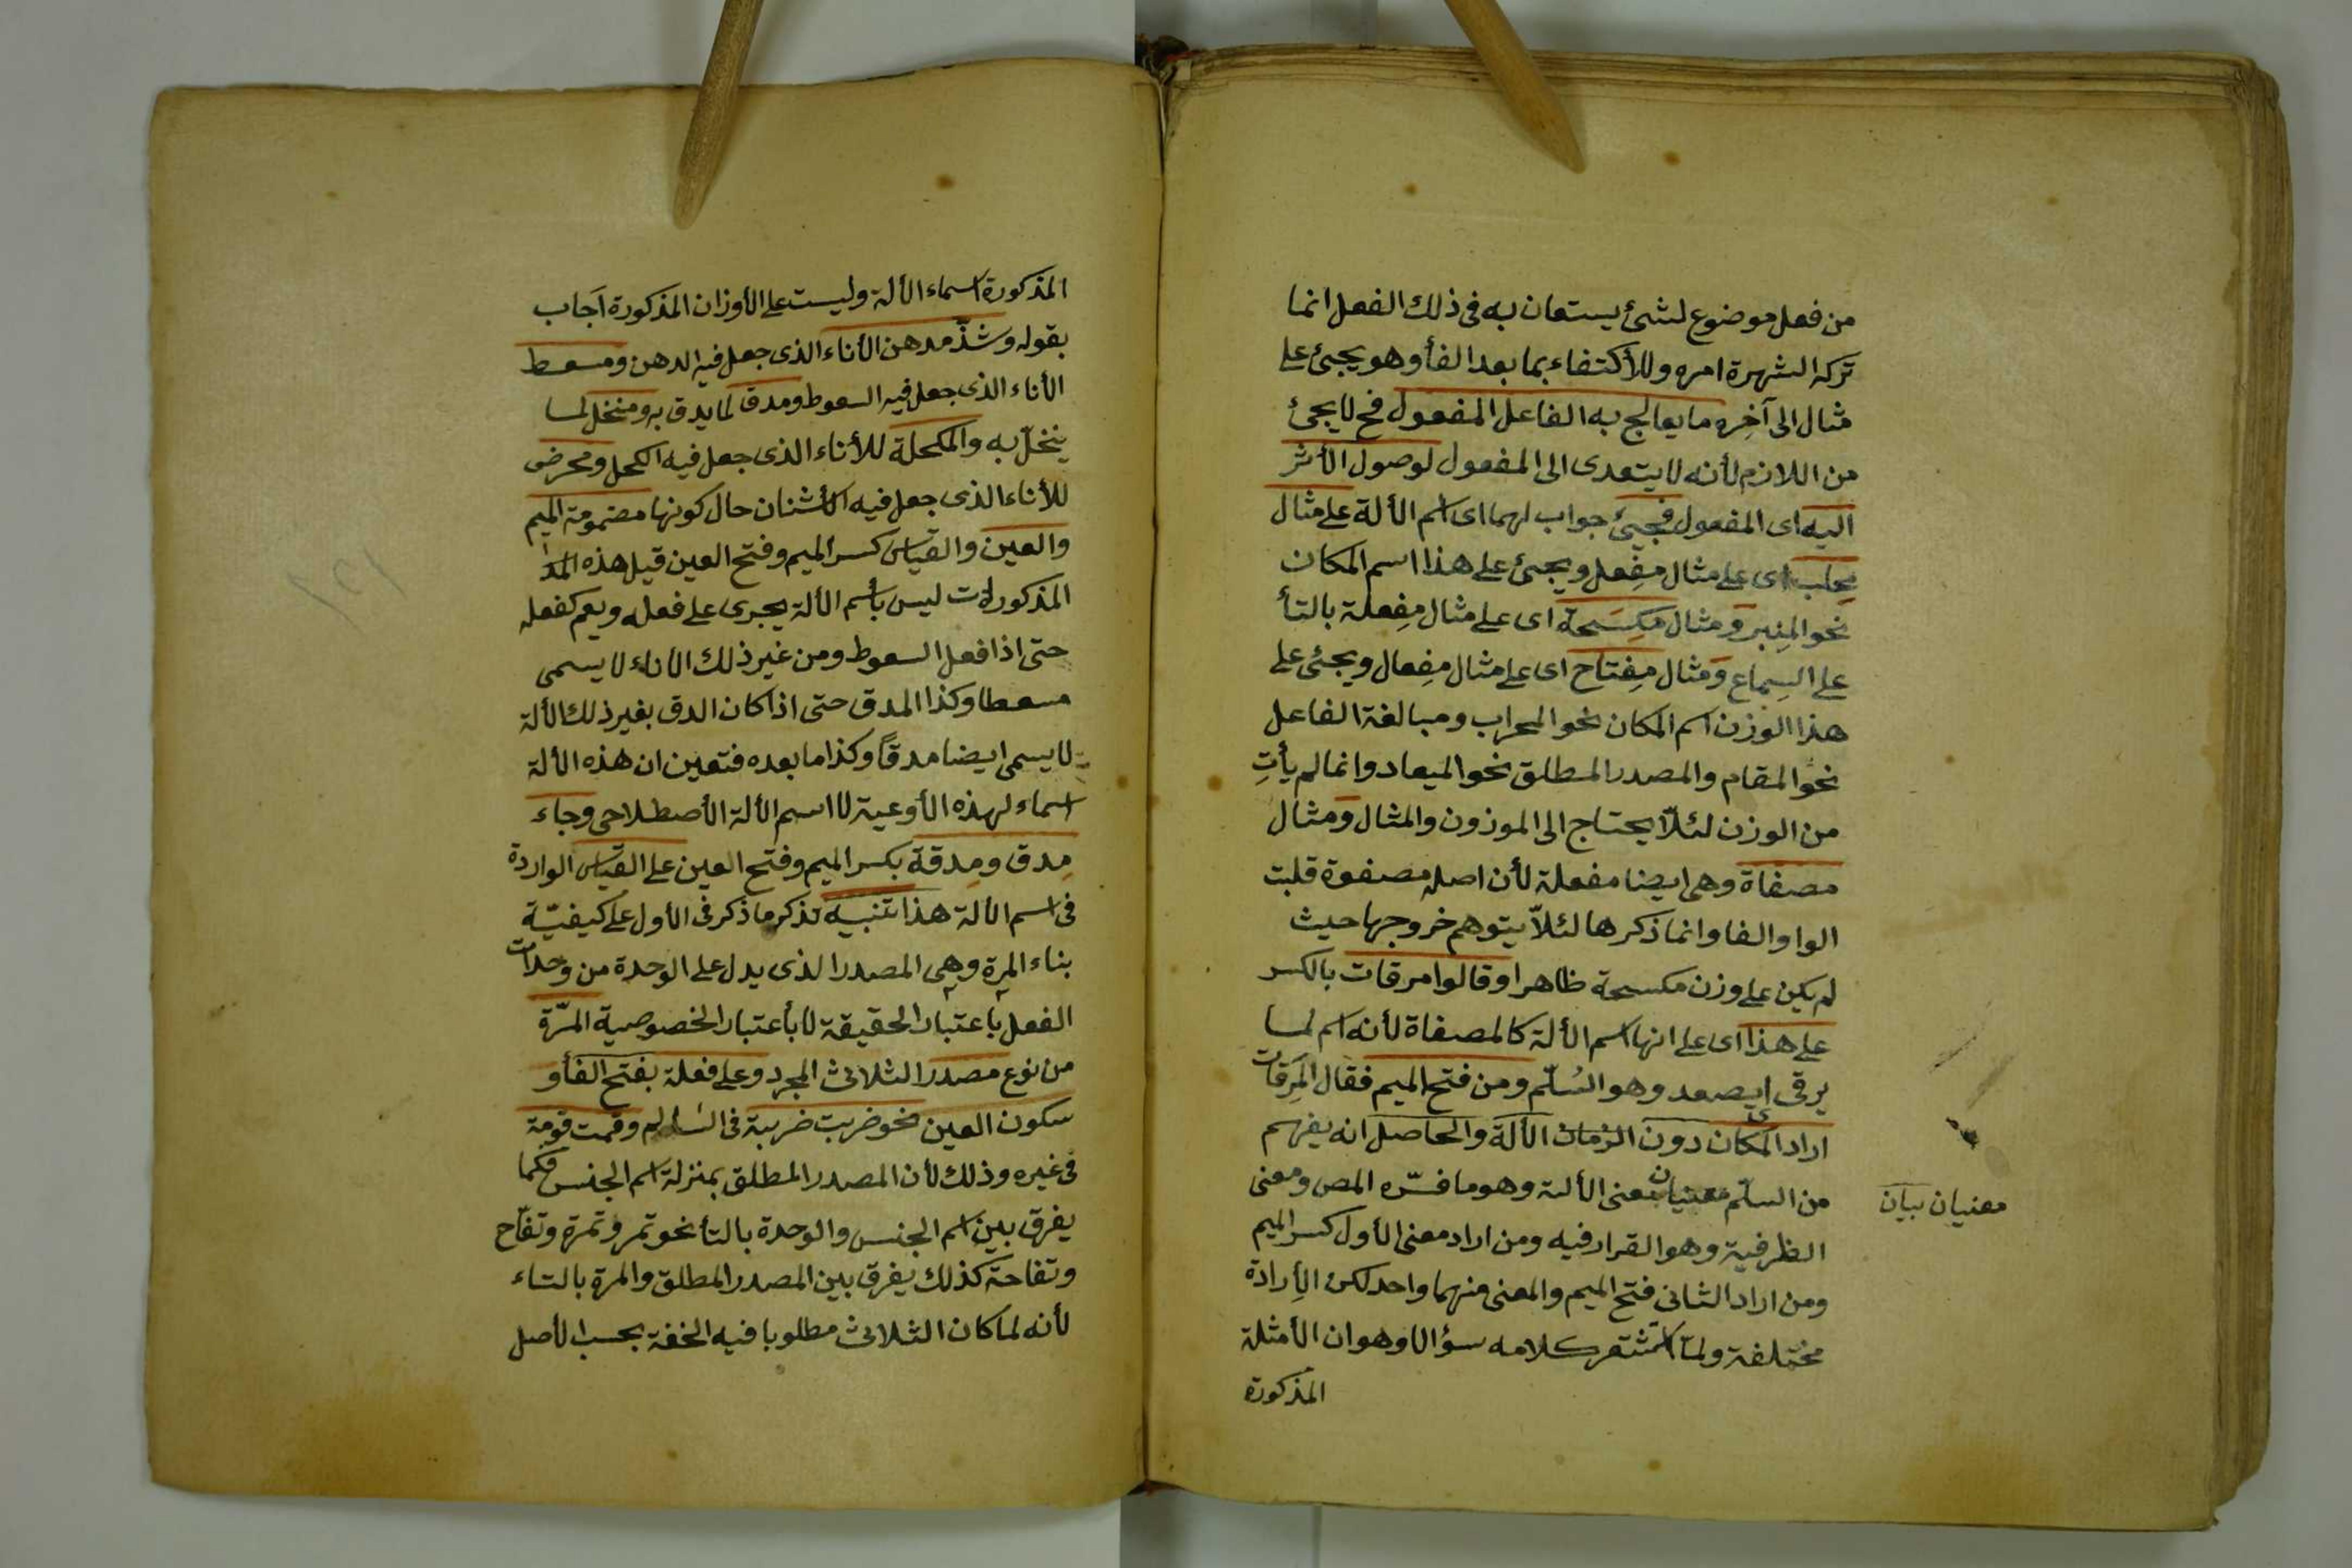 من فعل موضوع لشئ يستعان به فى ذلك الفعل انما
تركه الشهرة امره وللأكتفاء بما بعد الفأ وهو يجيئ على
مثال الى آخِره ما يعالج به الفاعل المفعول فح لا يجئ
من اللازم لأنه لا يتعدى الى المفعول لوصول الأثر
اليه اى المفعول فيجيئ جواب لهما اى اسم الألة على مثال
مِحلب اى على مثال مِفعل ويجيئ على هذا اسم المكان
نحو المِنبر وَمثال مِكسَحة اى على مثال مِفعلة بالتأ
على السِماع وَمثال مِفتاح اى على مثال مِفعال ويجئ على
هذا الوزن اسم المكان نحو المحراب ومبالغة الفاعل
نحو المقام والمصدر المطلق نحو الميعاد وانما لم يأتِ
من الوزن لئلاّ يحتاج الى الموزون والمثال وَمثال
مصفاة وهى ايضا مفعلة لأن اصله مصفوة قلبت
الواو الفا وانما ذكرها لئلاّ يتوهم خروجها حيث
لم يكن على وزن مكسحة ظاهرا وقالوا مرقات بالكسر
على هذا اى على انها اسم الألة كالمصفاة لأنه اسم لما
يرقى اى يصعد وهو السُلّم ومن فتح الميم فقال المَرقات
اراد المكان دون الزمان الألة والحاصل انه يفهم
من السلّم معنيان معنى الألة وهو ما فسّره المص ومعنى
معنيان بيان
الظرفية وهو القرار فيه ومن اراد معنى الأول كسر الميم
ومن اراد الثانى فتح الميم والمعنى منهما واحد لكن الإرادة
مختلفة ولمّا كلامه سؤالا وهو ان الأمثلة
المذكورة
المذكورة اسماء الألة وليست على الأوزان المذكورة اَجاب
بقوله وشذّ مدهن الأناء الذى جعل فيه الدهن ومسعط
الأناء الذى جعل فيه السعوط ومدق لما يدق به ومنخل لما
ينخلّ به والمكحلة للأناء الذى جعل فيه الكحل ومحرض
للأناء الذى جعل فيه الأشنان حال كونها مضمومة الميم
والعين والقياس كسر الميم وفتح العين قيل هذه
المذكورات ليس بأسم الألة يجرى على فعله ويعم كفعله
حتى اذا فعل السعوط ومن غير ذلك الأناء لا يسمى
مسعطا وكذا المدق حتى اذا كان الدق بغير ذلك الألة
لا يسمى ايضا مدقاً وكذا ما بعده فتعين ان هذه الألة
اسماء لهذه الأوعية لا اسم الألة الأصطلاحى وجاء
مِدق ومِدقة بكسر الميم وفتح العين على القياس الواردة
فى اسم الألة هذا تنبيه تذكر ما ذكر فى الأول على كيفيّة
بناء المرة وهى المصدر الذى يدل على الوحدة من وحدات
الفعل بأعتبار الحقيقة لا بأعتبار الخصوصية المرّة
من نوع مصدر الثلاثى المجرد وعلى فعلة بفتح الفأ و
سكون العين نحو ضربت ضربة فى السالم وقمت قومة
فى غيره وذلك لأن المصدر المطلق بمنزلة اسم الجنس فكما
يفرق بين اسم الجنس والوحدة بالتأ نحو تمر وتمرة وتفّاح
وتفاحة كذلك يفرق بين المصدر المطلق والمرة بالتاء
لأنه لما كان الثلاثى مطلوبا فيه الخفة بحسب الأصل